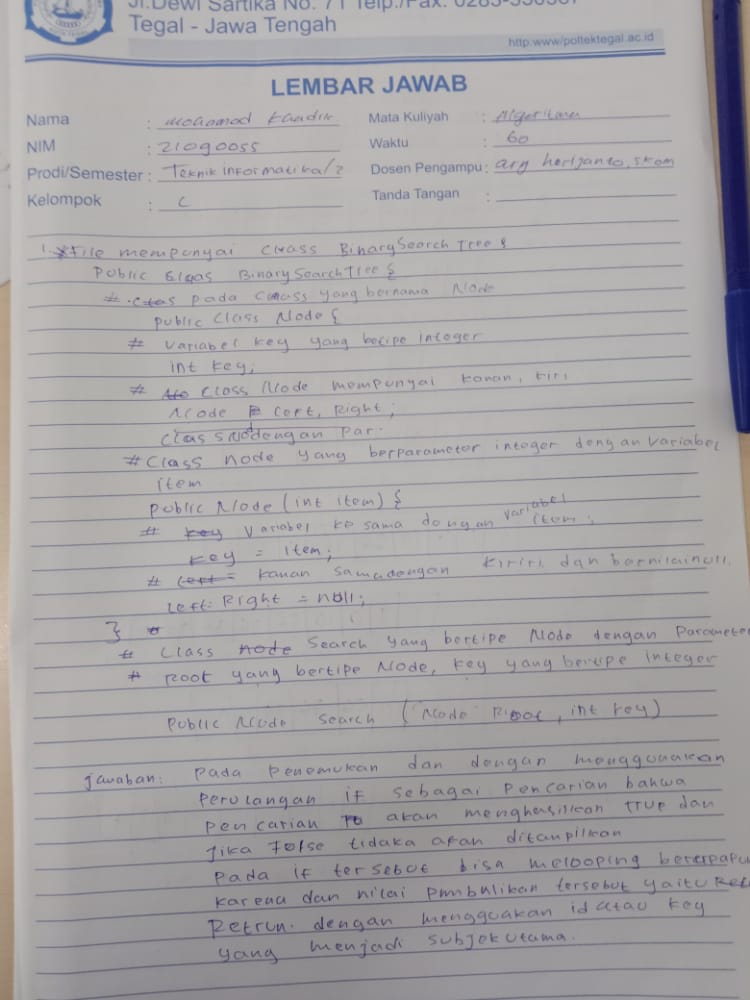 Jl.Dewi Sartika No. 71 Telp./Fax. 0283-
Tegal - Jawa Tengah
http:www/poltektegal.ac.id
LEMBAR JAWAB
Nama : Mohamad
NIM : 21090055
Prodi/Semester : Teknik informatika/2
Kelompok : C
Mata Kuliyah : Algoritma
Waktu : 60
Dosen Pengampu : ary herijanto, skom
Tanda Tangan :
1. *File mempunyai class Binary Search Tree {
Public Class BinarySearchTree {
# pada class yang bernama Node
public class Node {
# Variabel key yang bertipe Integer
int key;
# class Node mempunyai kanan, kiri
Node Left, Right;
Class Node dengan Par.
# Class node yang berparameter integer dengan variabel
item
public Node (int item) {
# Variabel ke sama dengan variabel item;
key = item;
# kanan samadengan kiriri dan bernilai null.
Left = Right = null;
}
# Class Search yang bertipe Node dengan Parameter
# Root yang bertipe Node, key yang bertipe Integer
Public Node search (Node Root, int key)
Jawaban: Pada Penemukan dan dengan menggunakan
Perulangan if sebagai Pencarian bahwa
Pencarian akan menghasilkan true dan
Jika False tidaka akan ditampilkan
Pada if tersebut bisa melooping beberapa
karena dan nilai pmbalikan tersebut yaitu
Retrun. dengan mengguakan id atau key
yang menjadi subjek utama.